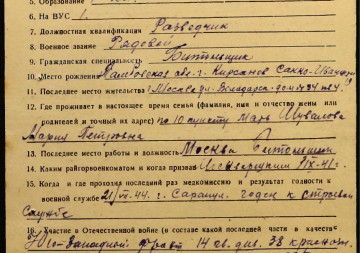 5. Образование
6. На ВУС
7. Должностная квалификация Разведчик
8. Военное звание Рядовой
9. Гражданская специальность
10. Место рождения Тамбовская обл. г. Кирсанов
11. Последнее место жительства г. Москва
12. Где проживает в настоящее время семья (фамилия, имя и отчество жены или
родителей и точный их адрес) по 10 пункту Мать Шувалова
Мария Петровна
13. Последнее место работы и должность Москва
14. Каким райгорвоенкоматом и когда призван
15. Когда и где проходил последний раз медкомиссию и результат годности к
военной службе 21/VI.44 г. Сарапул. годен к строевой
службе
16. Участие в Отечественной войне (в составе какой последней части в качестве
Юго-западный фронт 14 гв. див. 38